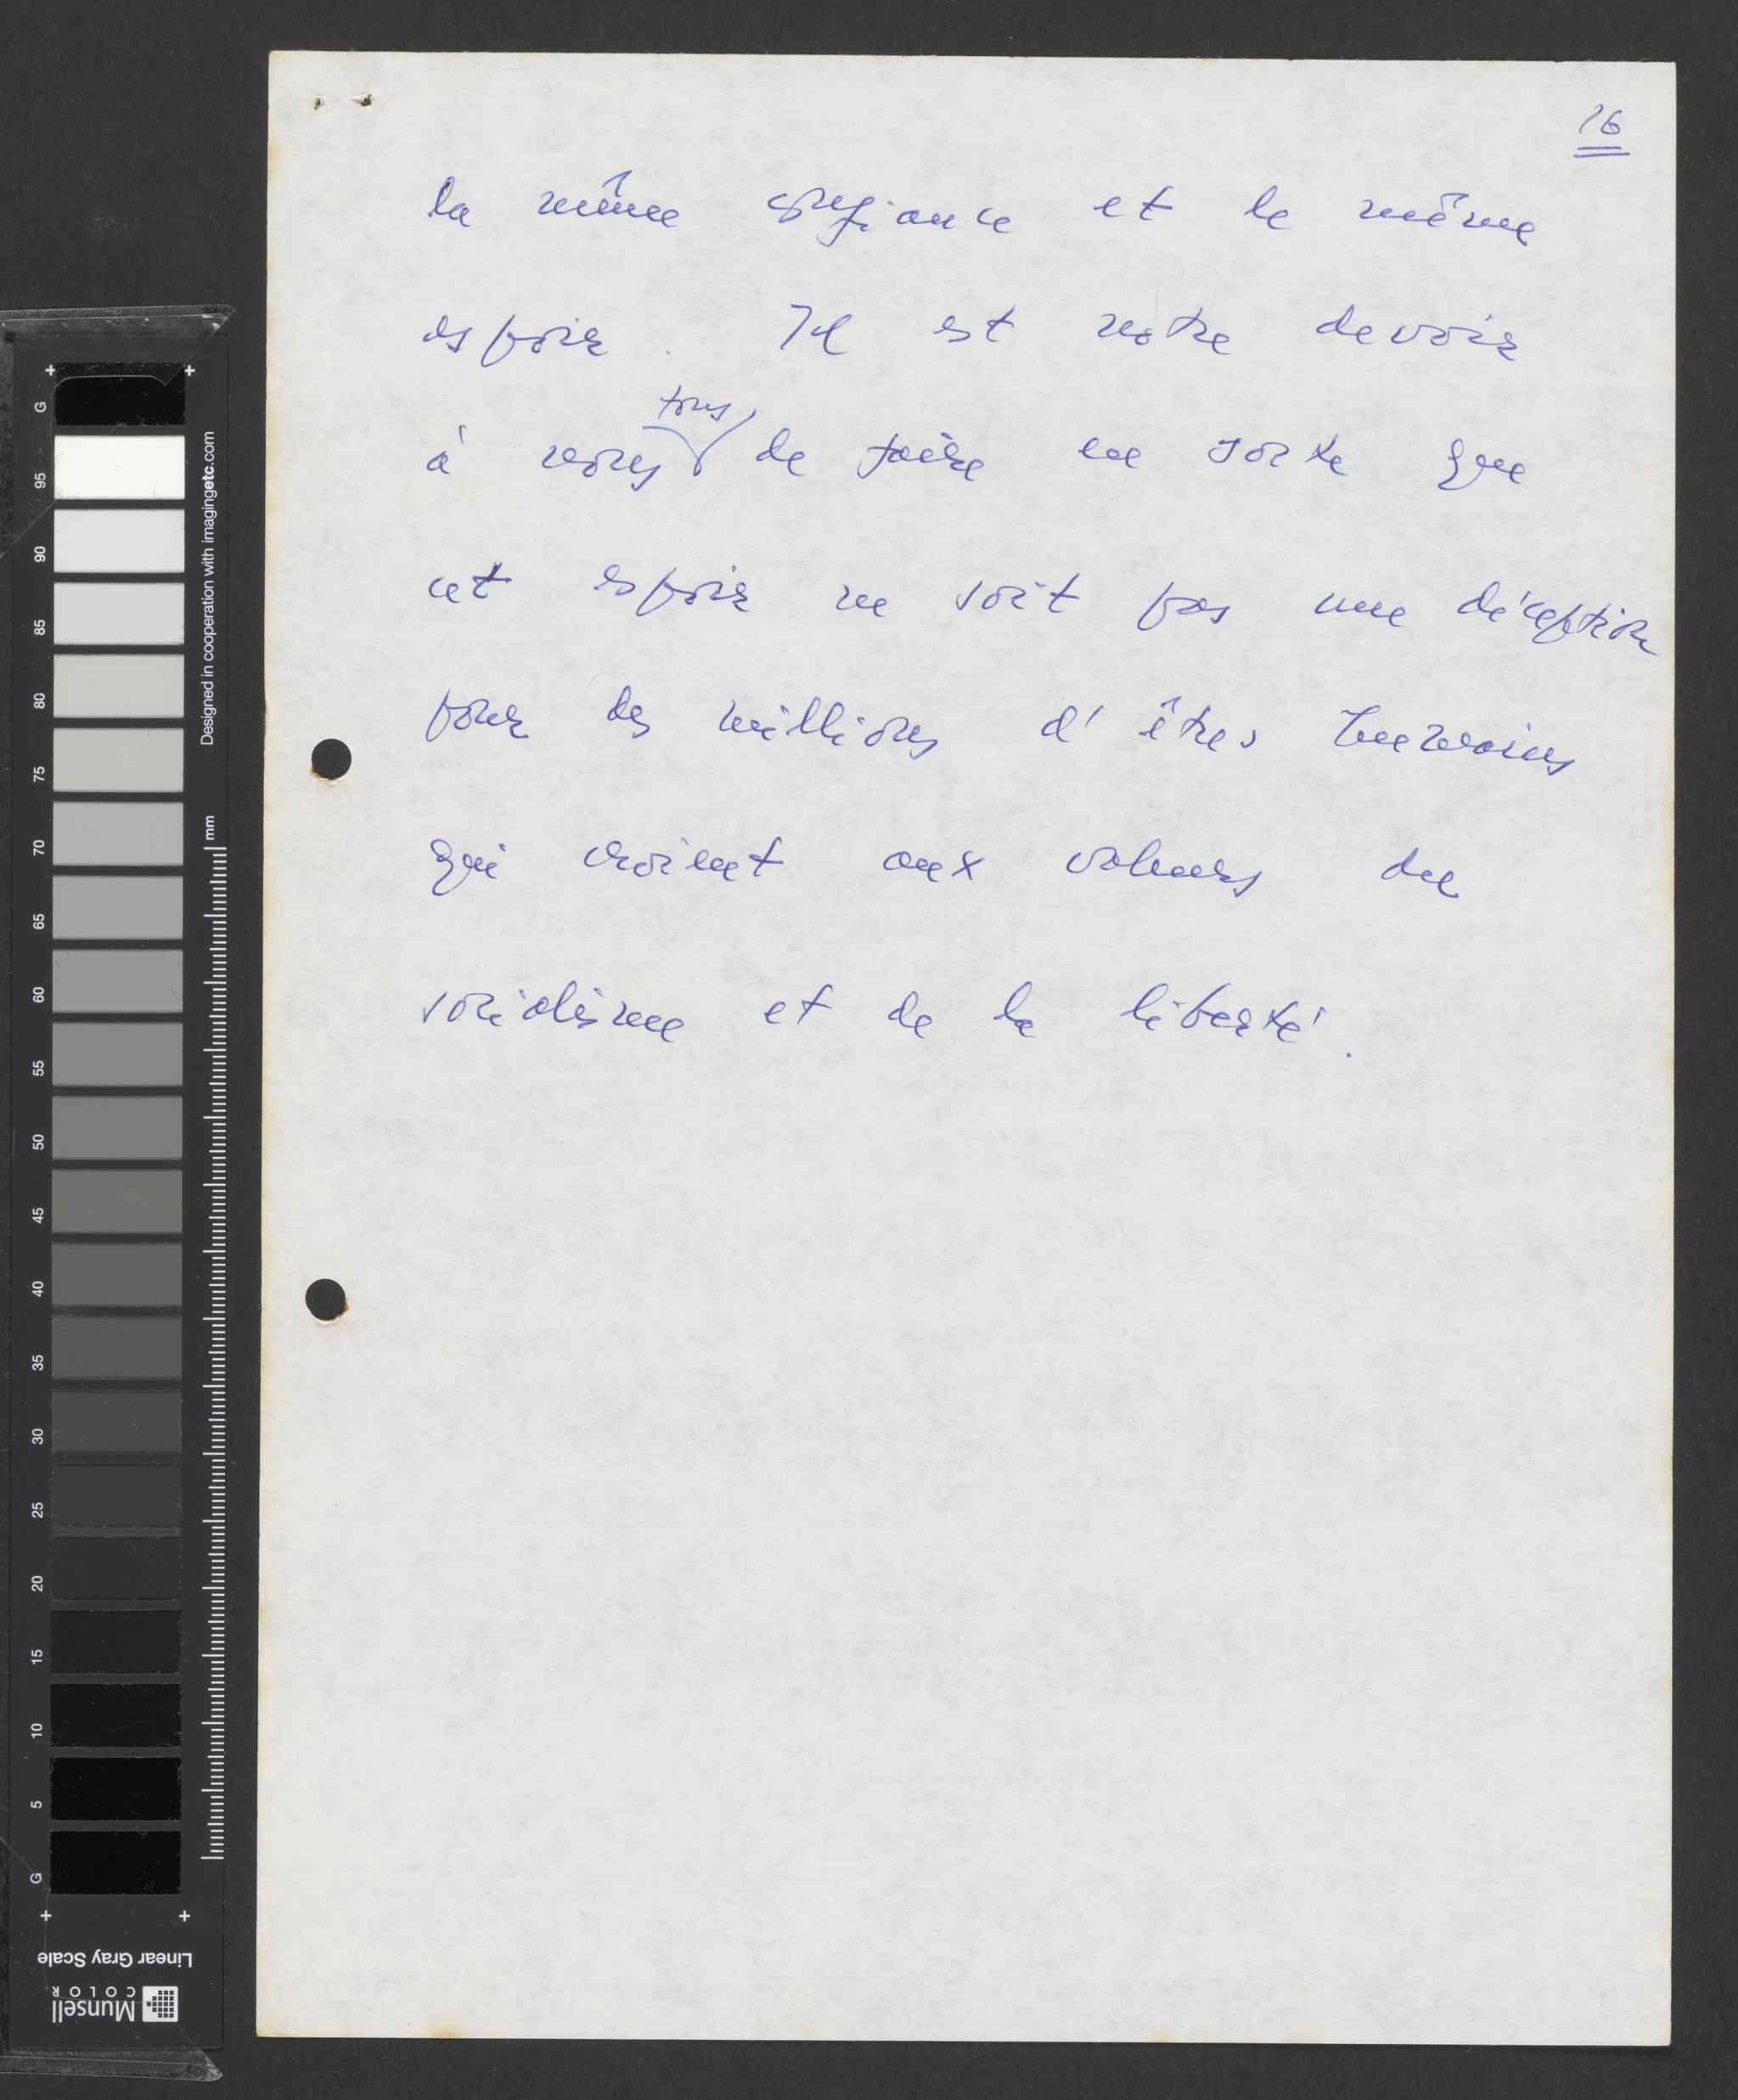 16
la même confiance et le même
espoir. Il est notre devoir
à nous tous de faire en sorte que
cet espoir ne soit pas une déception
pour des millions d'êtres humains
qui croient aux valeurs du
socialisme et de la liberté.
Designed in cooperation with imagingetc.com
mm
G
95
90
85
80
75
70
65
60
55
50
45
40
35
30
25
20
15
10
5
G
Linear Gray Scale
Munsell
COLOR